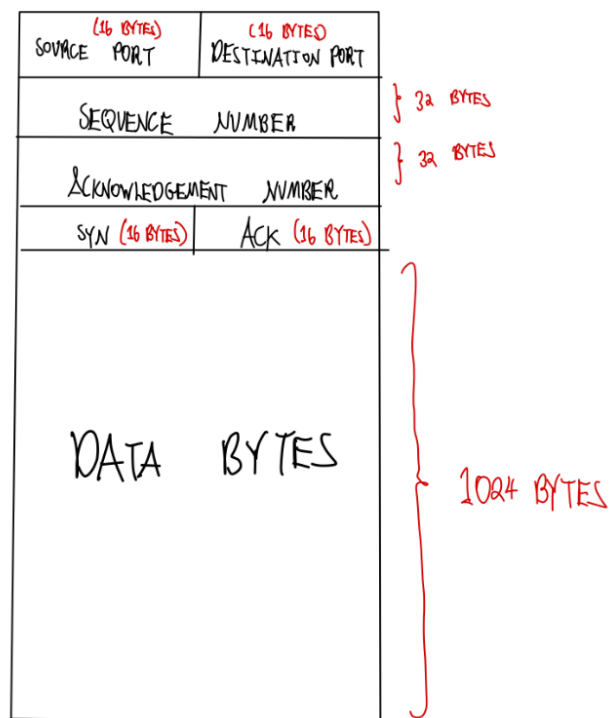 (16 BYTES) (16 BYTES)
SOURCE PORT DESTINATION PORT
SEQUENCE NUMBER } 32 BYTES
ACKNOWLEDGEMENT NUMBER } 32 BYTES
SYN (16 BYTES) ACK (16 BYTES)
DATA BYTES } 1024 BYTES